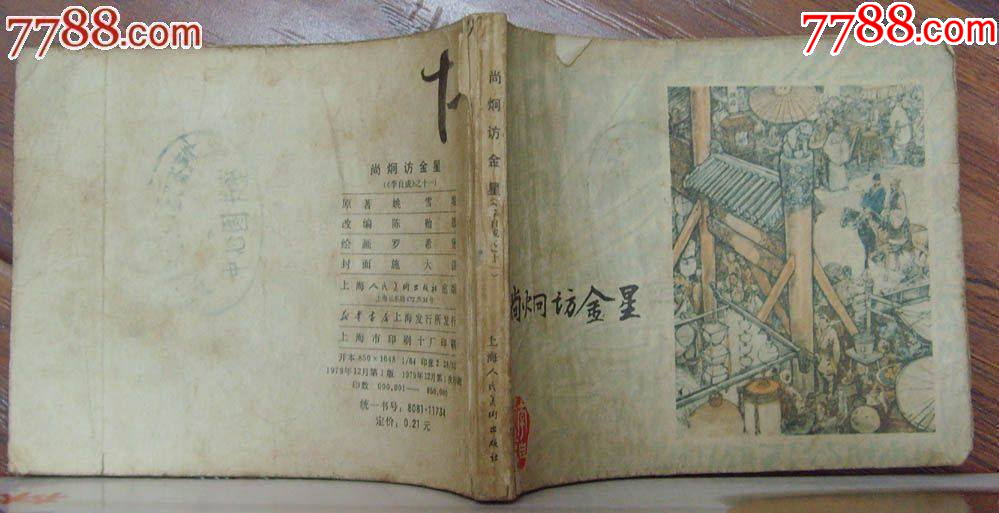 7788.com
7788.com
十
尚炯访金星
(《李自成》之十一)
原著 姚雪
改编 陈
绘画 罗希
封面 施大
上海人民美术出版社出版
上海长乐路672弄33号
新华书店上海发行所发行
上海市印刷十厂印刷
开本 850×1048 1/64 印张2
1979年12月第1版 1979年12月第1次印刷
印数 000,001—
统一书号: 8081·11734
定价: 0.21元
尚炯访金星
上海人民美术出版社
尚炯访金星
中国